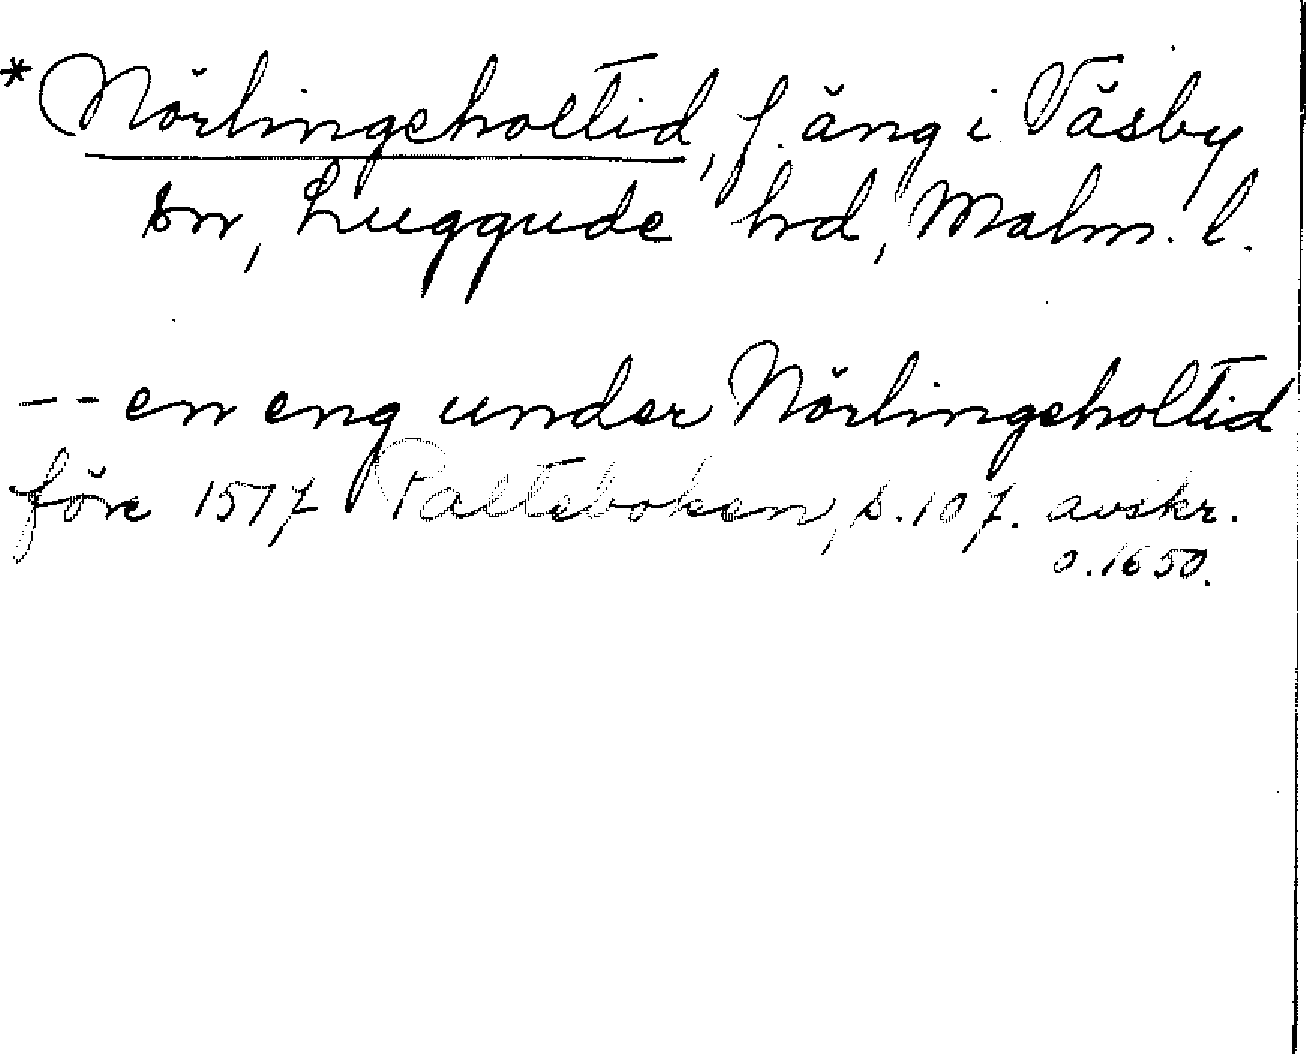 *Nörlingeholtid, f. äng i Väsby
sn, Luggude hrd, Malm. l.
-- en eng under Nörlingeholtid
före 1517 Palteboken, s. 107. avskr.
o. 1650.